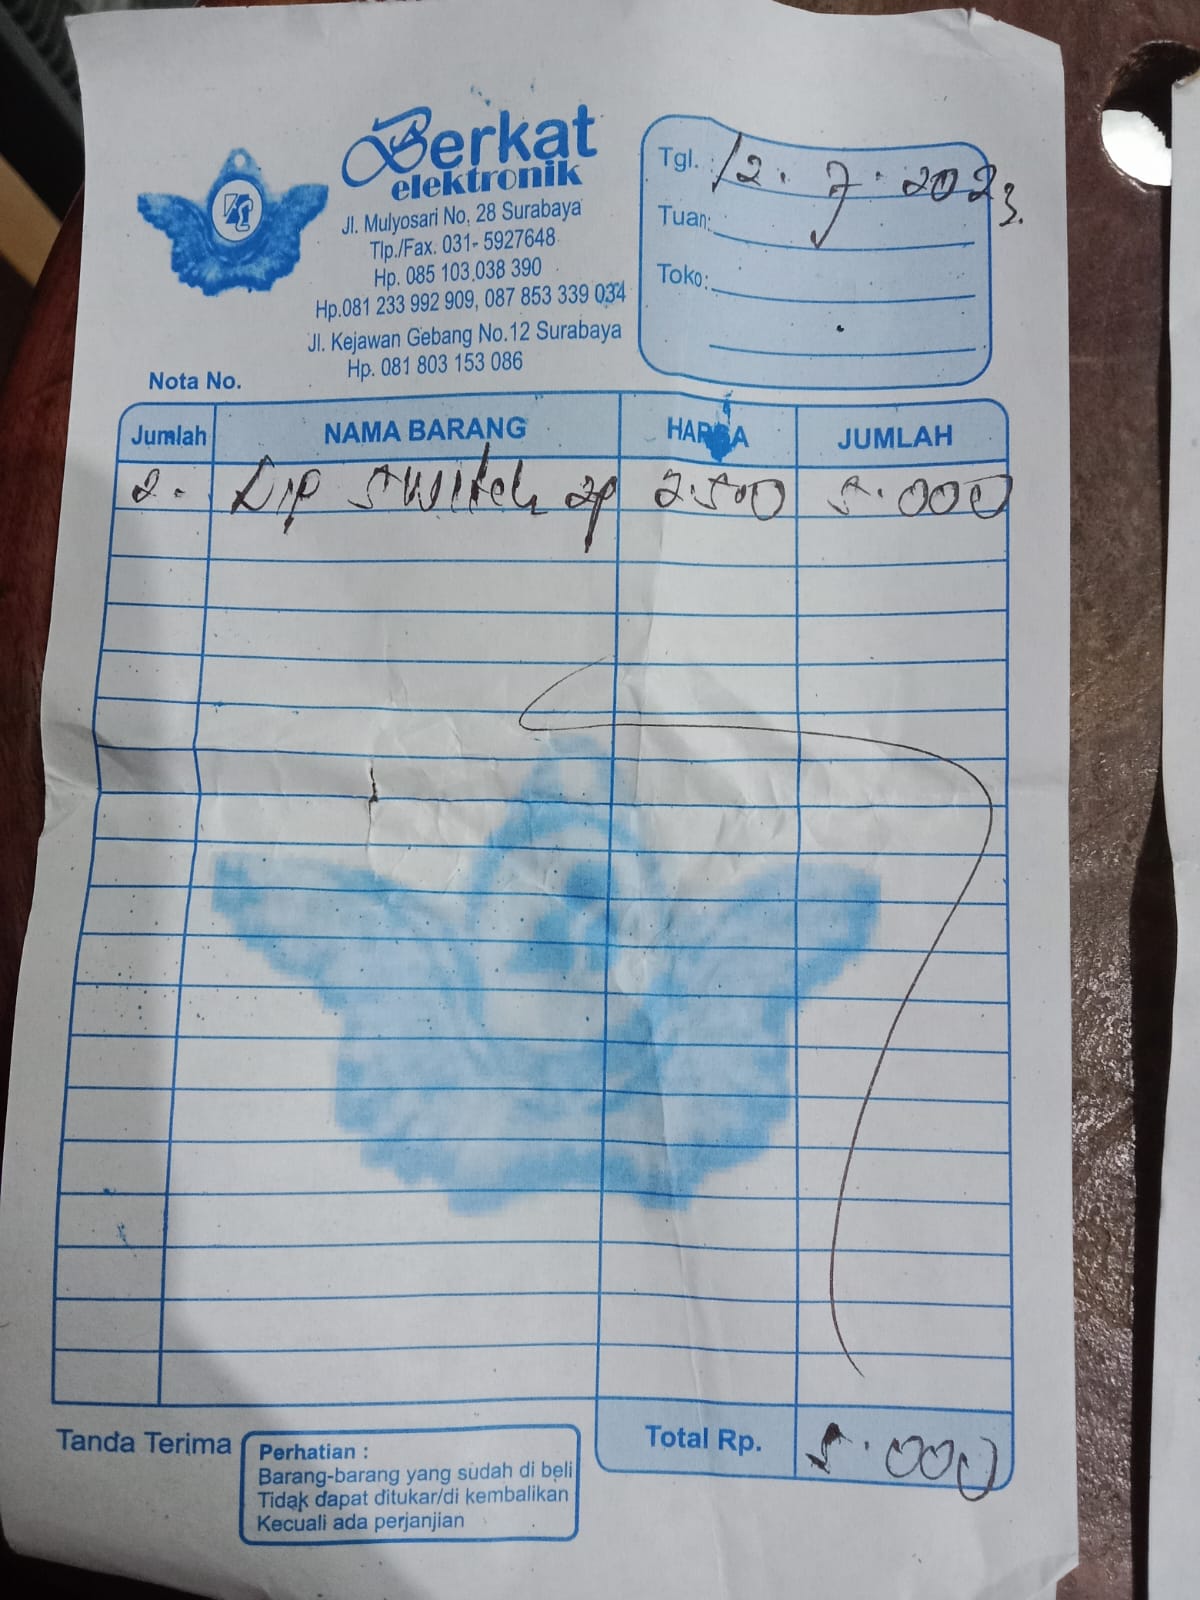 Berkat
elektronik
Jl. Mulyosari No, 28 Surabaya
Tlp./Fax. 031- 5927648
Hp. 085 103 038 390
Hp.081 233 992 909, 087 853 339 034
Jl. Kejawan Gebang No.12 Surabaya
Hp. 081 803 153 086
Tgl. : 12. 7. 2023.
Tuan:
Toko:
Nota No.
Jumlah NAMA BARANG HARGA JUMLAH
2. Dip switch 2p 2.500 5.000
Total Rp. 5.000
Tanda Terima
Perhatian :
Barang-barang yang sudah di beli
Tidak dapat ditukar/di kembalikan
Kecuali ada perjanjian